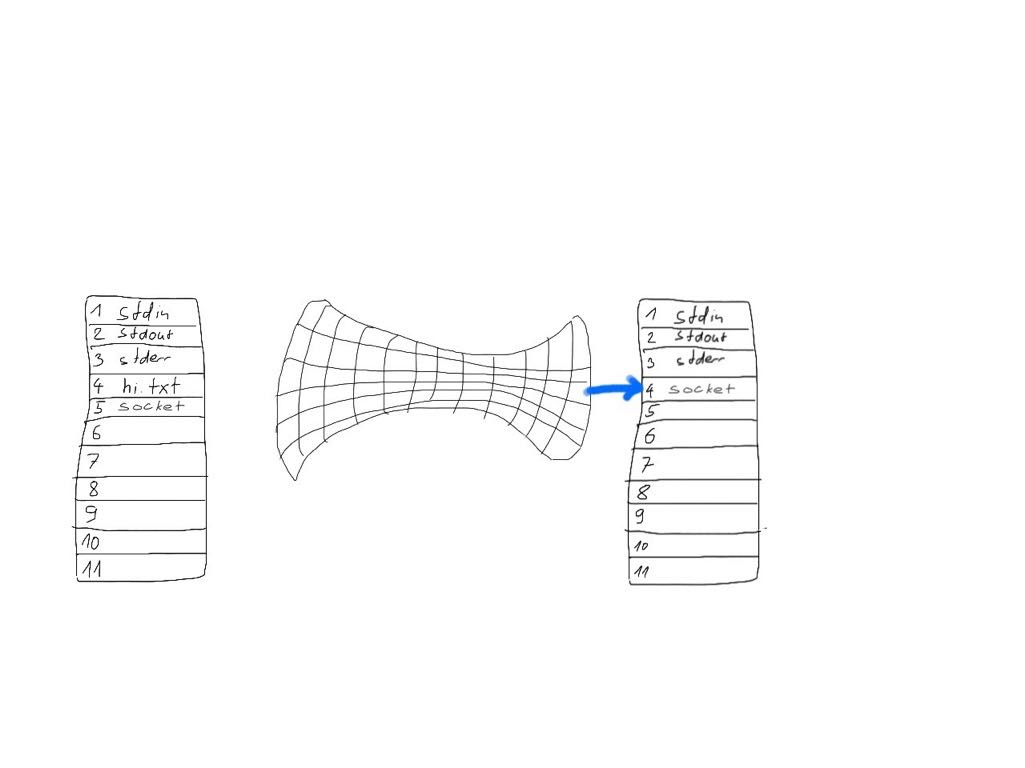 1 stdin
2 stdout
3 stderr
4 hi.txt
5 socket
6
7
8
9
10
11
1 stdin
2 stdout
3 stderr
4 socket
5
6
7
8
9
10
11